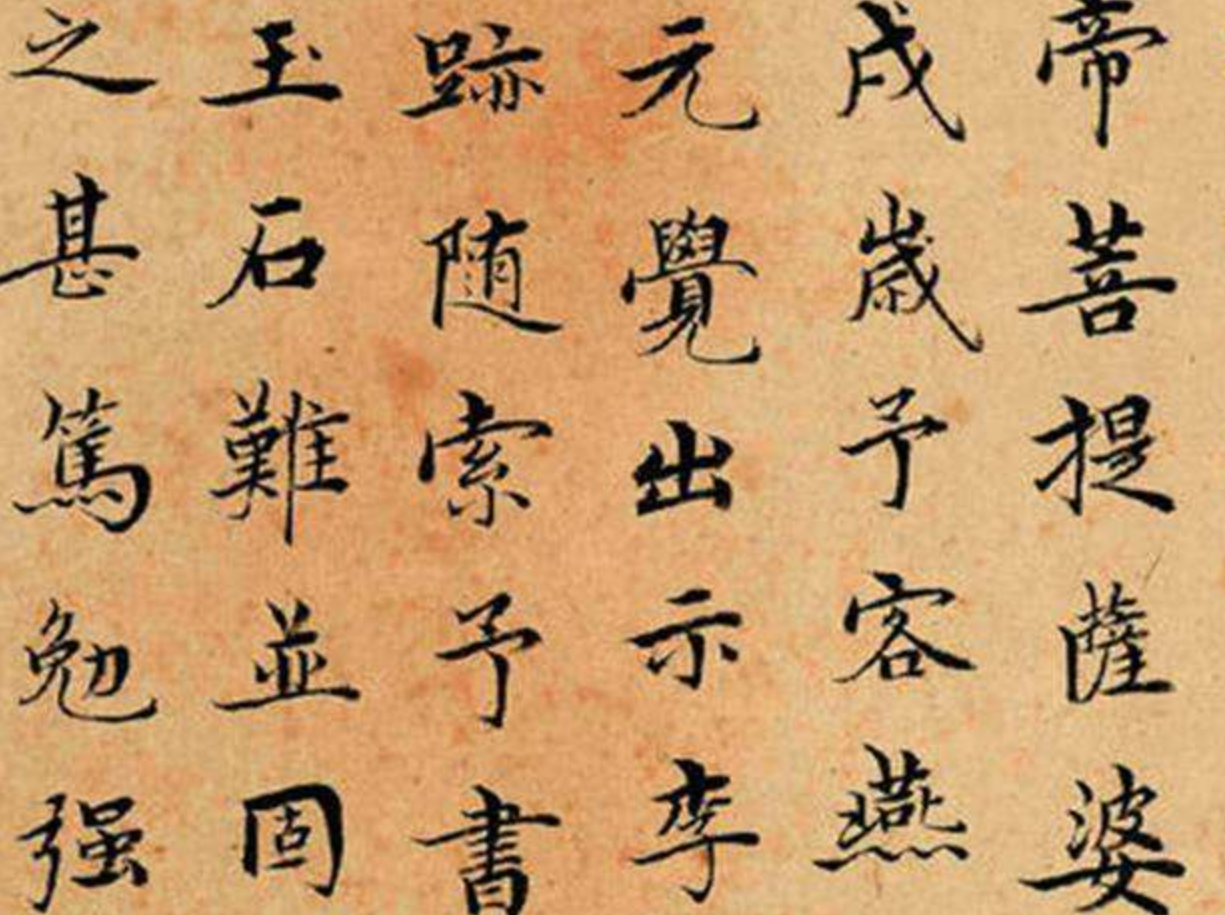 帝菩提薩婆
戌歲予客燕
元覺出示李
跡随索予書
玉石難並固
之甚篤勉强